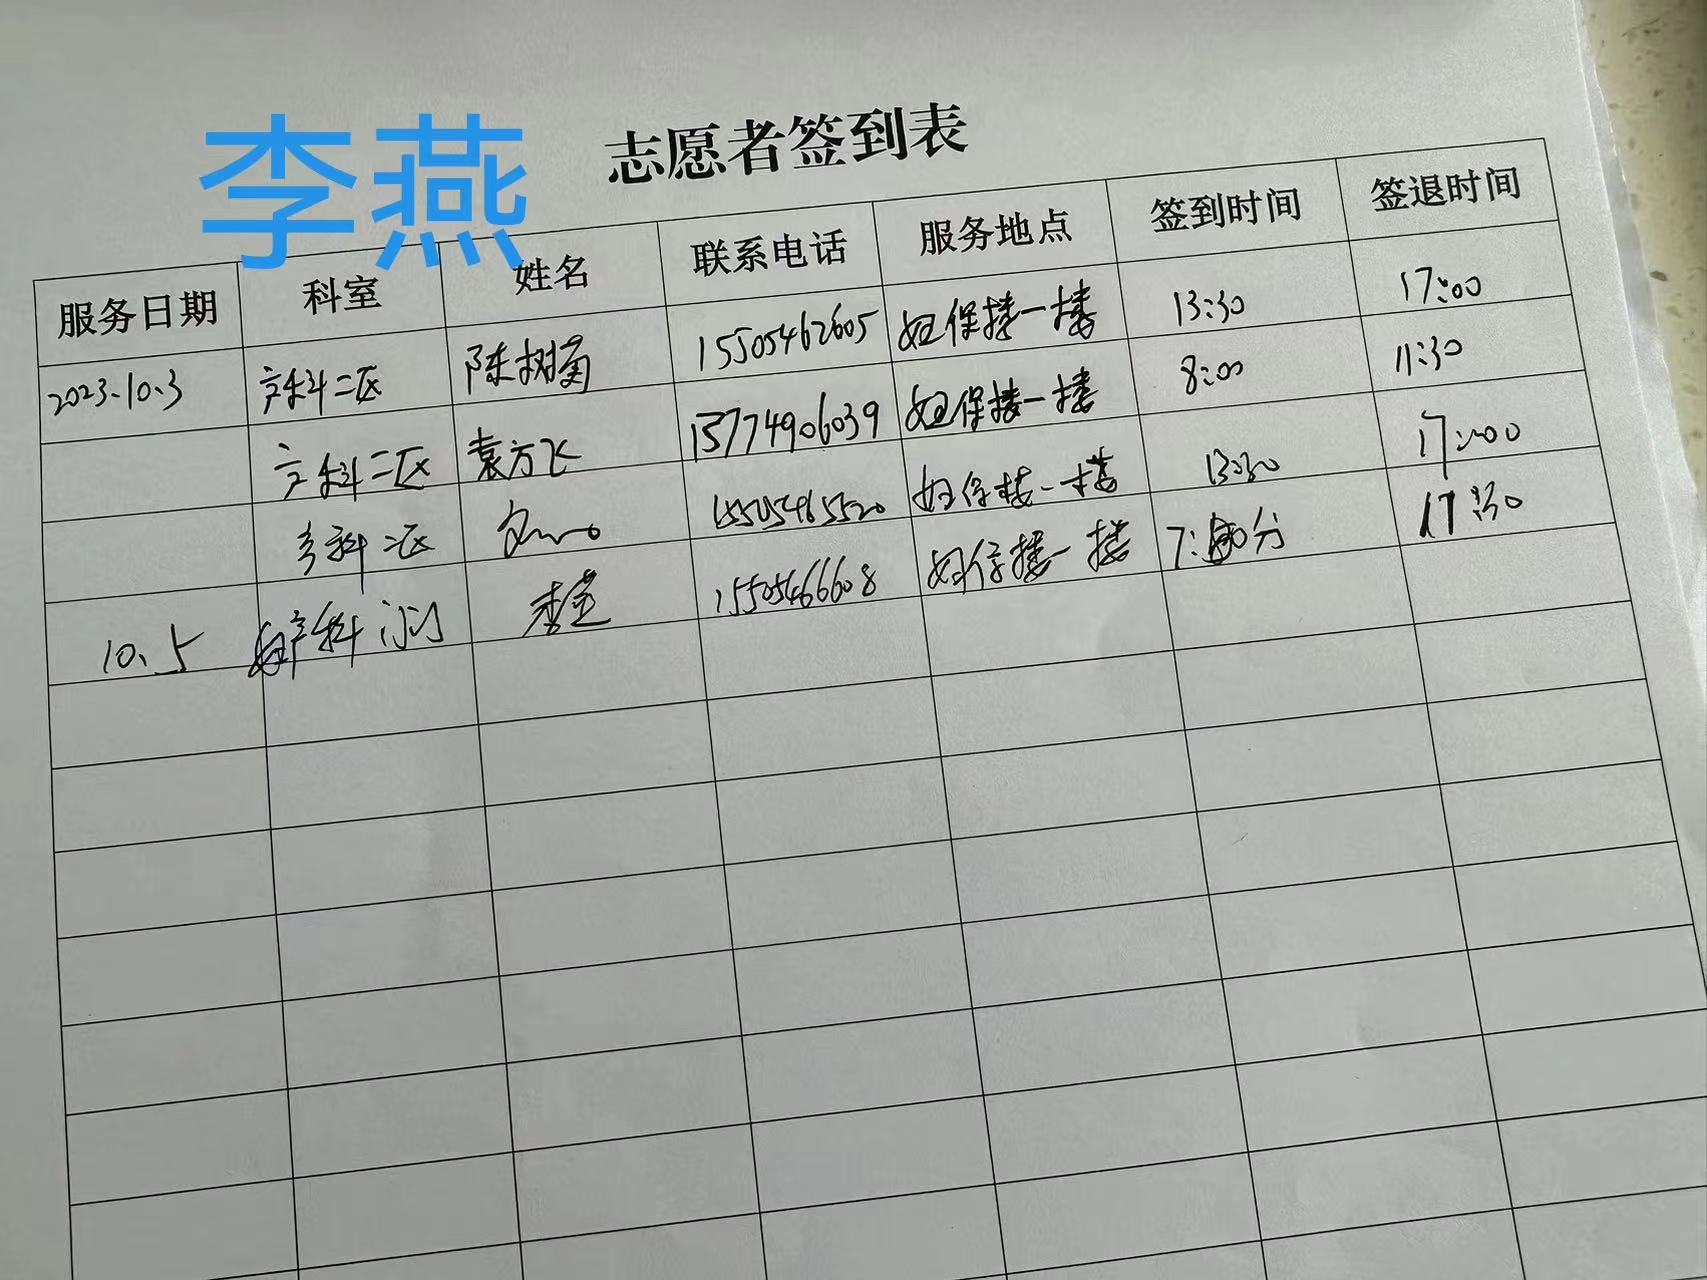 李燕
志愿者签到表
服务日期 科室 姓名 联系电话 服务地点 签到时间 签退时间
2023.10.3 产科二区 陈树菊 15505462605 妇保楼一楼 13:30 17:00
产科二区 袁方飞 15774906039 妇保楼一楼 8:00 11:30
产科二区 15505465520 妇保楼一楼 13:30 17:00
10.5 产科门 15505466608 妇保楼一楼 7: 分 17:30